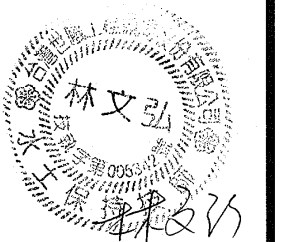 台灣世曦工程顧問股份有限公司
林文弘
技執字第005342號
水土保持技師
林文弘